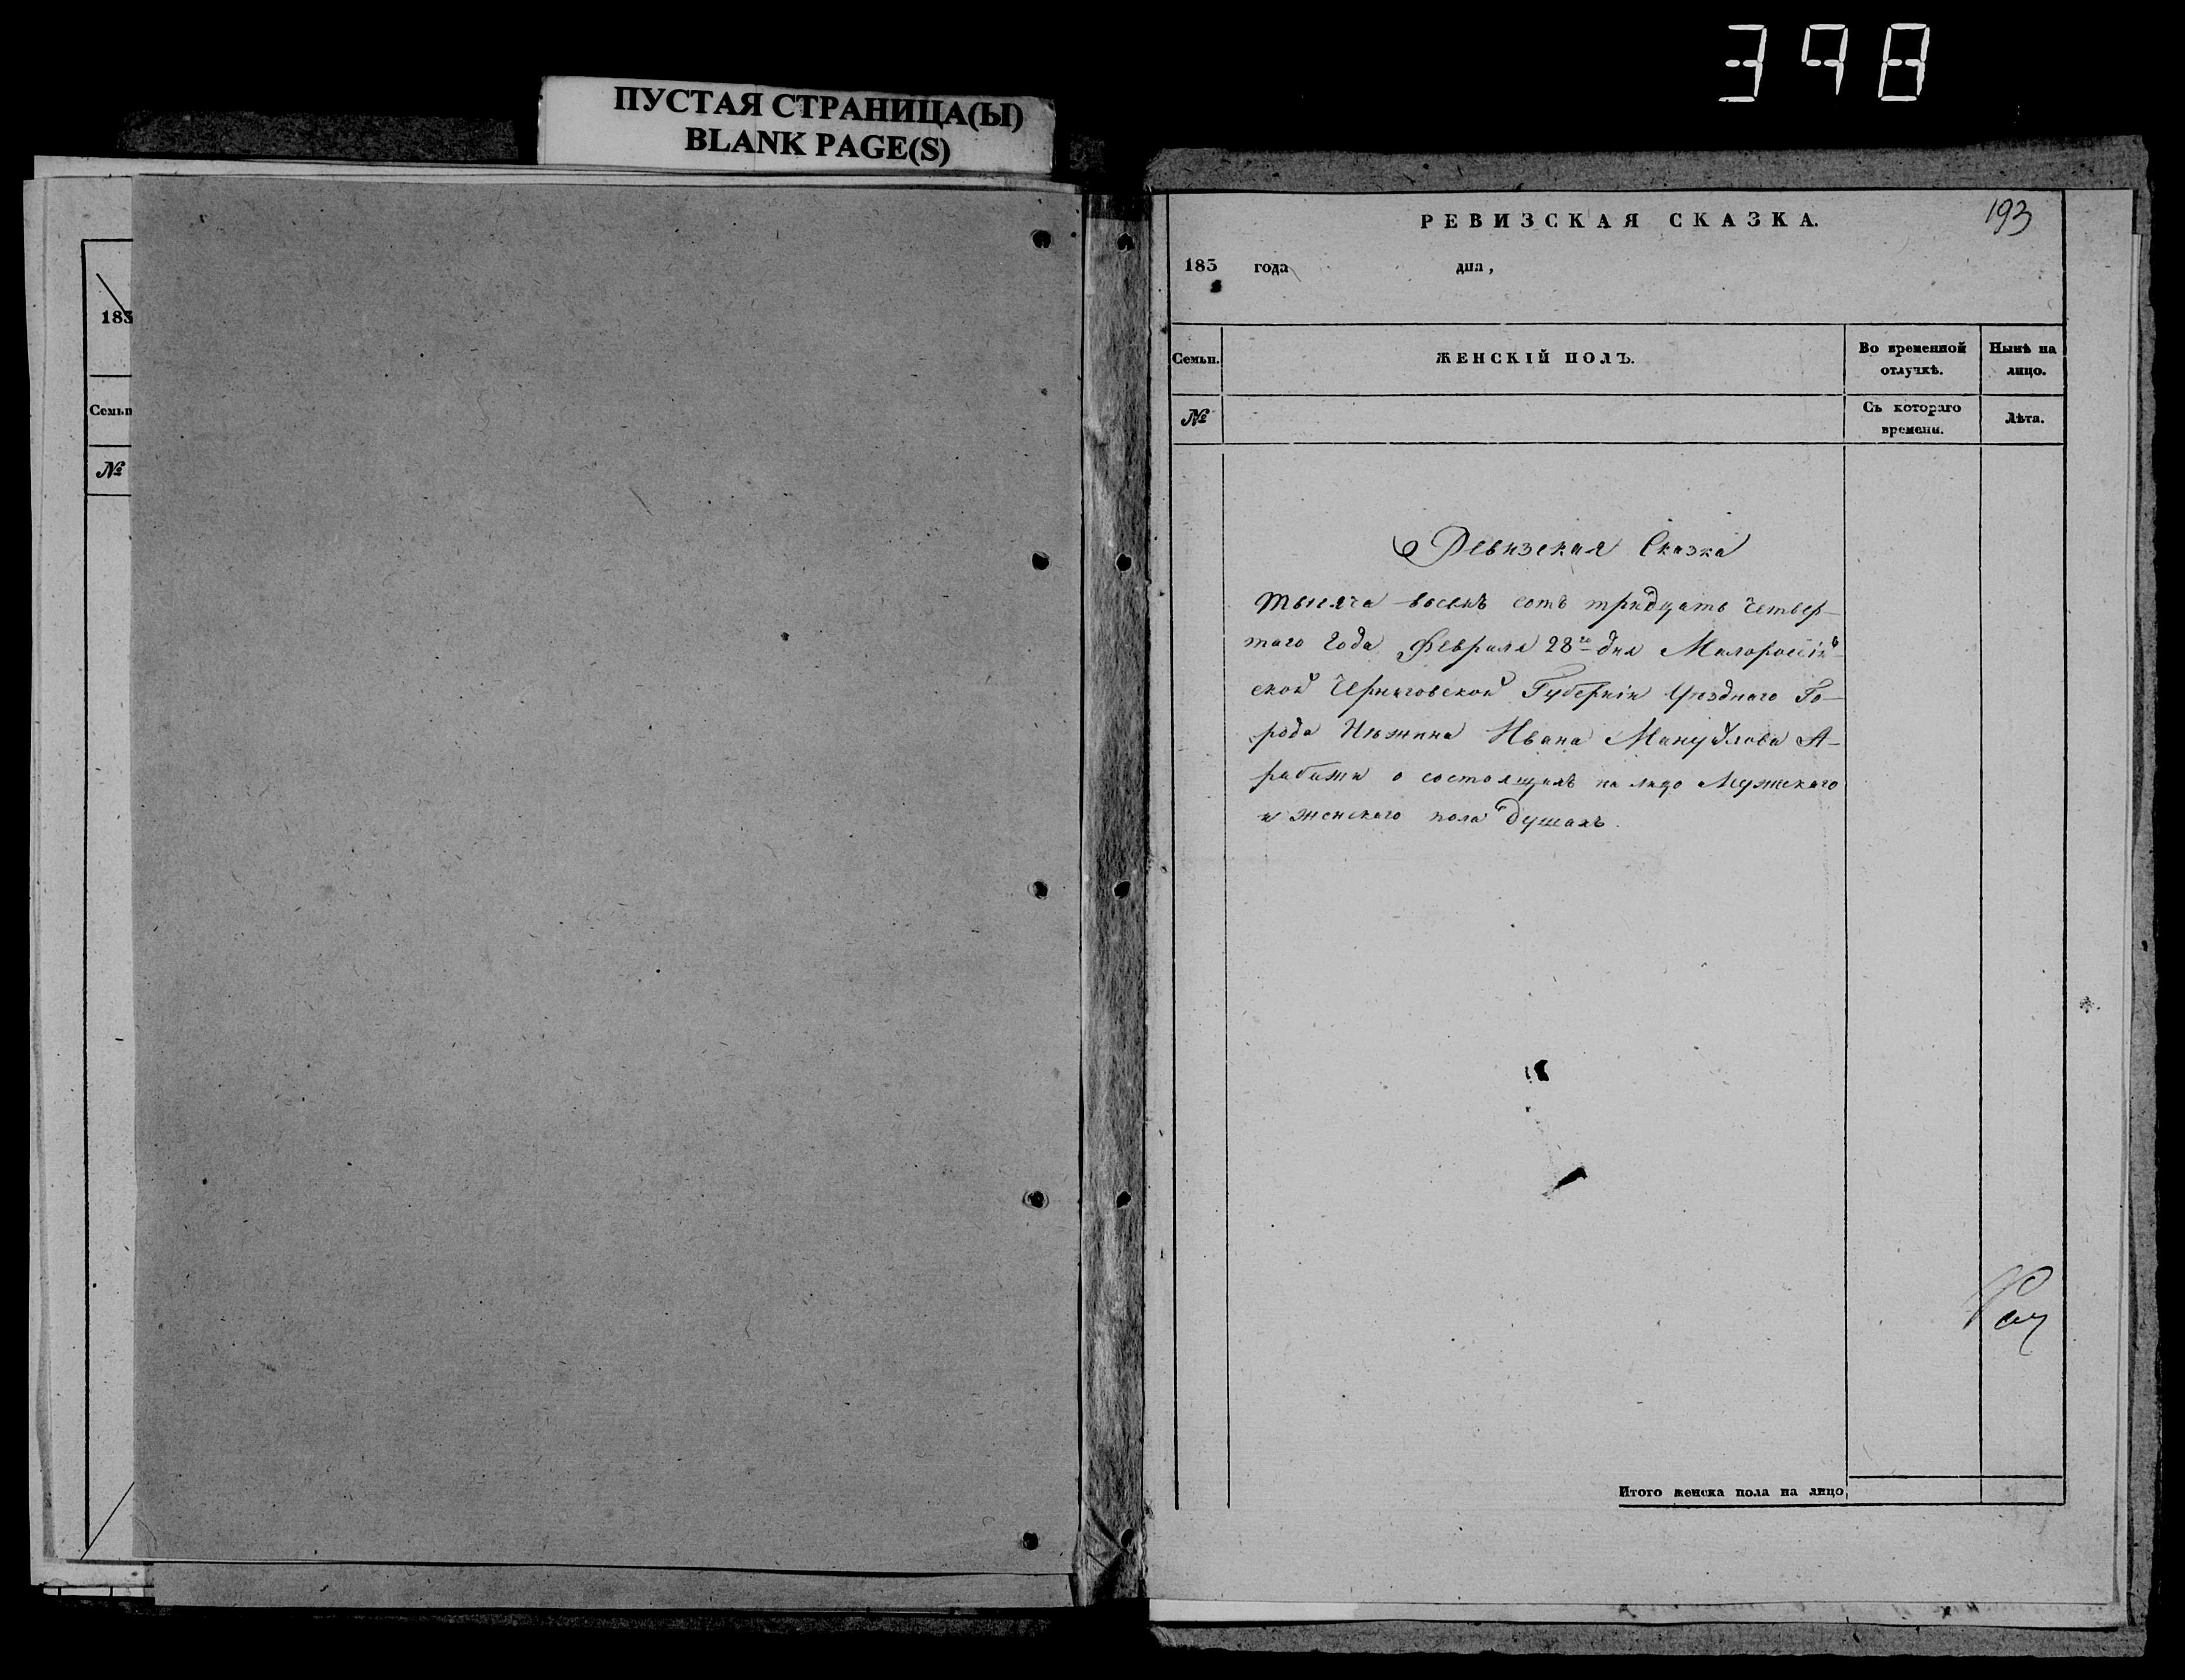 398
ПУСТАЯ СТРАНИЦА(Ы)
BLANK PAGE(S)
183
Семьи
№
РЕВИЗСКАЯ СКАЗКА.
193
183 года дня,
Семьи.
ЖЕНСКІЙ ПОЛЪ.
Во временной отлучкѣ.
Нынѣ на лицо.
№
Съ котораго времени.
Лѣта.
Ревизская Сказка
тысяча восемь сотъ тридцать четвер-
таго года Февраля 28го дня Малороссій-
ской Черниговской Губерніи Уѣзднаго Го-
рода Нѣжина Ивана Мануйлова А-
рабажи о состоящихъ на лицо Мужскаго
и женскаго пола душахъ.
Итого женска пола на лицо